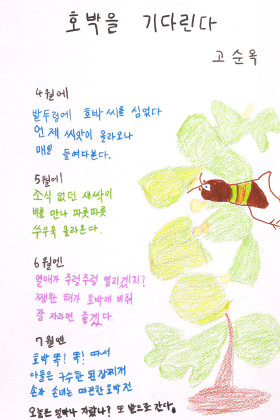 호박을 기다린다
고 순 옥
4월에
밭두렁에 호박 씨를 심었다
언제 씨앗이 올라오나
매일 들여다본다.
5월에
소식 없던 새싹이
비를 만나 파릇파릇
쑤우욱 올라온다.
6월엔
열매가 주렁주렁 열리겠지?
쨍한 해가 호박에 비춰
잘 자라면 좋겠다.
7월엔
호박 뚝! 뚝! 따서
아들은 구수한 된장찌개
손자 손녀는 따끈한 호박전
오늘은 얼마나 자랐나? 또 밭으로 간다.